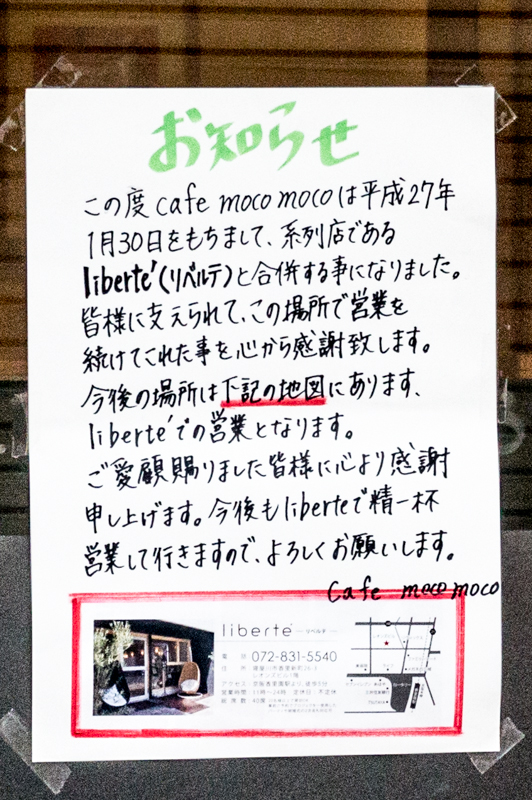 お知らせ
この度cafe moco mocoは平成27年
1月30日をもちまして、系列店である
liberte'(リベルテ)と合併する事になりました。
皆様に支えられて、この場所で営業を
続けてこれた事を心から感謝致します。
今後の場所は下記の地図にあります、
liberte'での営業となります。
ご愛顧賜りました皆様に心より感謝
申し上げます。今後もliberteで精一杯
営業して行きますので、よろしくお願いします。
Cafe moco moco
liberte' ―リベルテ―
電話 072-831-5540
住所
アクセス 京阪香里園駅より、徒歩5分
営業時間 11時〜24時 定休日:不定休
総席数 40席